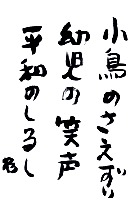 小鳥のさえずり
幼児の笑声
平和のしるし